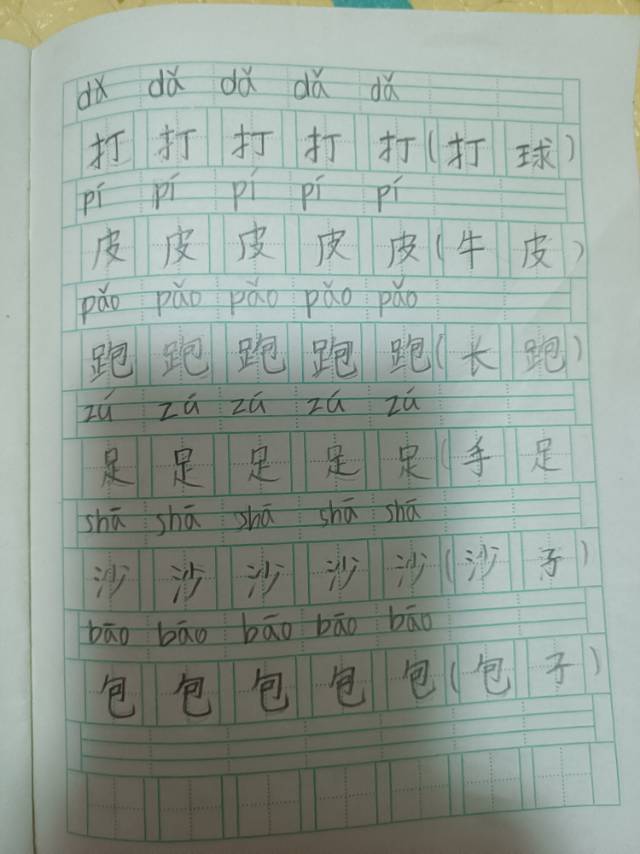 dǎ dǎ dǎ dǎ dǎ
打 打 打 打 打(打 球)
pí pí pí pí pí
皮 皮 皮 皮 皮(牛 皮)
pǎo pǎo pǎo pǎo pǎo
跑 跑 跑 跑 跑(长 跑)
zú zú zú zú zú
足 足 足 足 足(手 足
shā shā shā shā shā
沙 沙 沙 沙 沙(沙 子)
bāo bāo bāo bāo bāo
包 包 包 包 包(包 子)